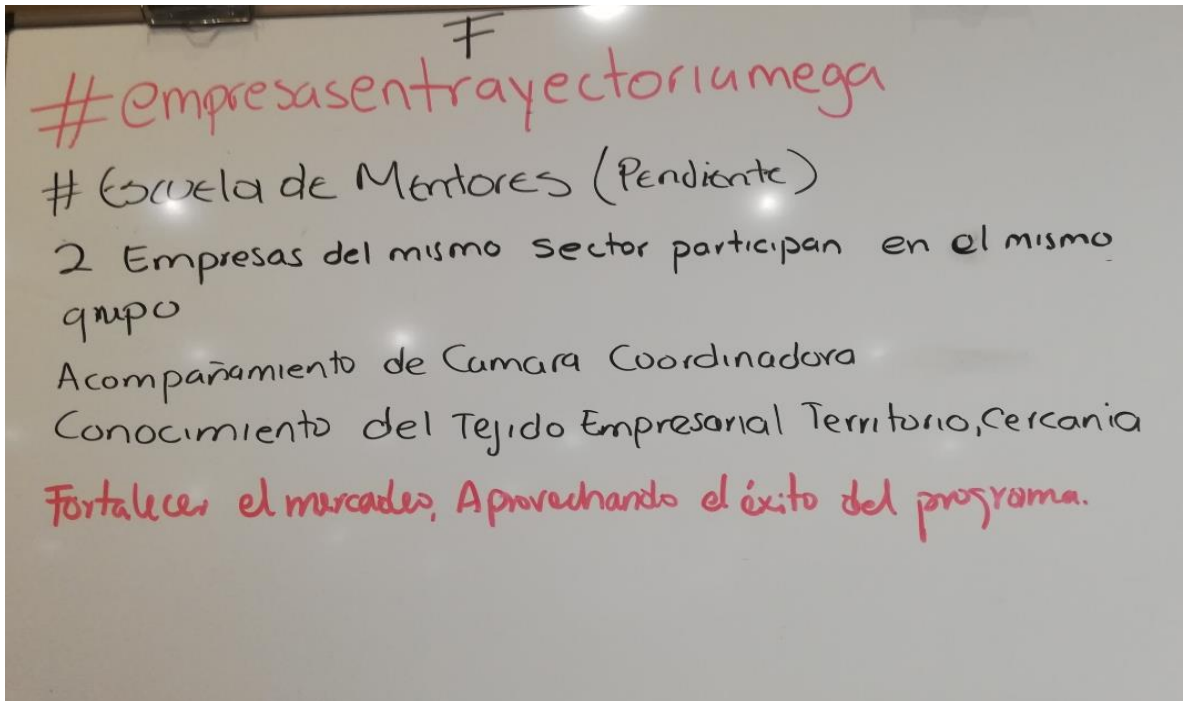 F
#empresasentrayectoriamega
# Escuela de Mentores (Pendiente)
2 Empresas del mismo sector participan en el mismo
grupo
Acompañamiento de Camara Coordinadora
Conocimiento del Tejido Empresarial Territorio, Cercania
Fortalecer el mercadeo, Aprovechando el éxito del programa.